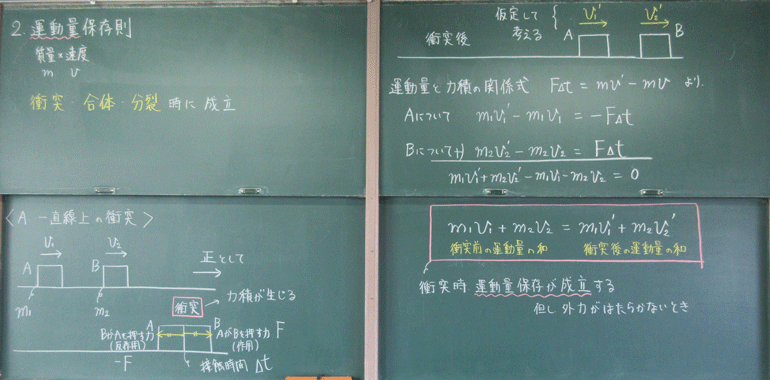 2. 運動量保存則
質量×速度
m v
衝突・合体・分裂 時に 成立
〈A. 一直線上の衝突〉
v₁ v₂
A B
正として
m₁ m₂
衝突
力積が生じる
A B
BがAを押す力
(反作用)
-F
AがBを押す力 F
(作用)
接触時間 Δt
衝突後
仮定して
考える
v₁' v₂'
A B
運動量と力積の関係式 FΔt = mv' - mv より.
Aについて m₁v₁' - m₁v₁ = -FΔt
Bについて +) m₂v₂' - m₂v₂ = FΔt
m₁v₁' + m₂v₂' - m₁v₁ - m₂v₂ = 0
m₁v₁ + m₂v₂ = m₁v₁' + m₂v₂'
衝突前の運動量の和 衝突後の運動量の和
衝突時 運動量保存が成立する
但し 外力がはたらかないとき